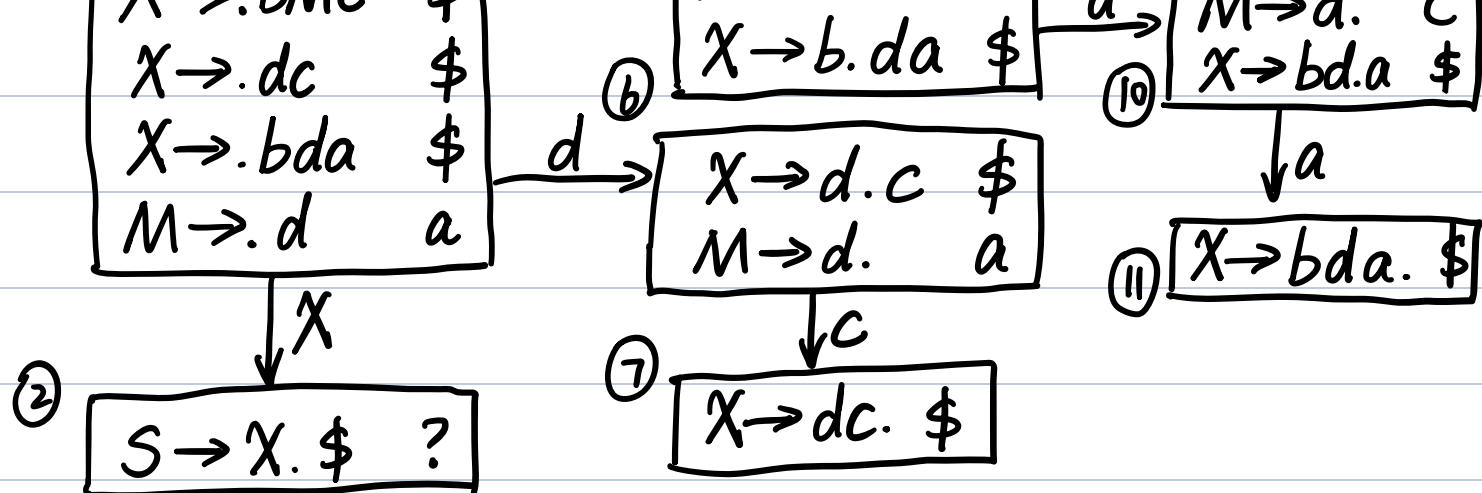 X→.bMc $
X→.dc $
X→.bda $
M→.d a
d
X
②
S→X.$ ?
X→b.da $
⑥
X→d.c $
M→d. a
c
⑦
X→dc. $
d
M→d. c
X→bd.a $
⑩
a
⑪
X→bda. $